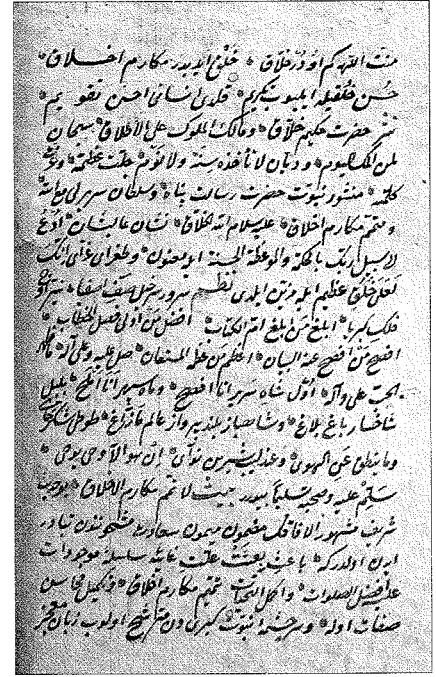 منت اللهه كم اودر خلاق خلقى ايديدر مكارم اخلاق
حسن خلقيله ايليوب تكريم قلدى انسانى احسن تقويم
حضرت حكيم خلاق ومالك الملوك على الاطلاق سبحان
وديان لا تأخذه سنة ولا نوم جلت عظمته
كلمته منشور نبوت حضرت رسالت پناه وسلطان سرير لى مع الله
ومتمم مكارم اخلاق عليه سلام الله الخلاق نشان عاليشان ادع
لا سبيل ربك بالحكمة والموعظة الحسنة ايله معنون وطغراى غراى انك
لعلى خلق عظيم ايله مزين ايلدى نظم سرور سرخيل صف اصفيا
فلك كبريا ابلغ من بلغ ام الكتاب افضل من اوتى فصل الخطاب
افصح من افصح عنه البيان اعظم من صل عليه وعلى آله
على وآله اول شاه سرير انا افصح وماه سپهر انا املح بلبل
شاخسار باغ بلاغ وشاهباز بلند پرواز عالم ما زاغ طوطئ
وما ينطق عن الهوى وعندليب شيرين نواى ان هو الا وحى يوحى
سلم عليه وصحبه تسليما بيور بعثت لاتمم مكارم الاخلاق
شريف مشهور الآفاقك مضمون ميمون سعادت مشحونندن متبادر
ايدن اولدركه باعث بعثت علت غائيه سلسله موجودات
عليه افضل الصلوات واكمل التحيات تتميم مكارم اخلاق وتكميل محاسن
صفات اوله وسرچشمه نبوت كبرى دن مترشح اولوب زبان معجز